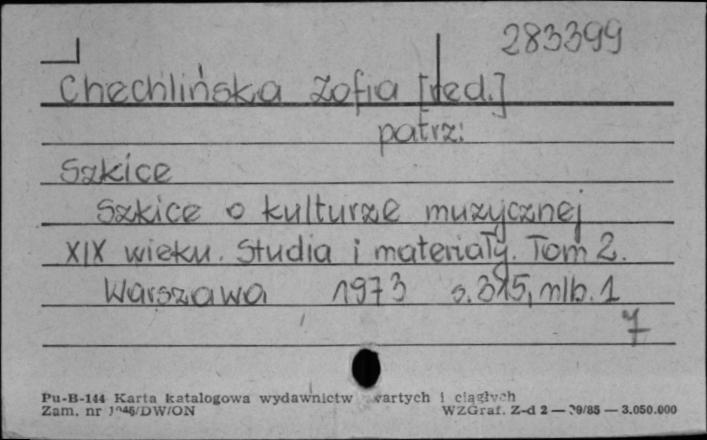 283399
Chechlińska Zofia [red.]
patrz:
Szkice
Szkice o kulturze muzycznej
XIX wieku. Studia i materiały. Tom 2.
Warszawa 1973 s. 315, nlb. 1
7
Pu-B-144 Karta katalogowa wydawnictw i ciągłych
Zam. nr WZGraf. Z-d 2 — — 3.050.000